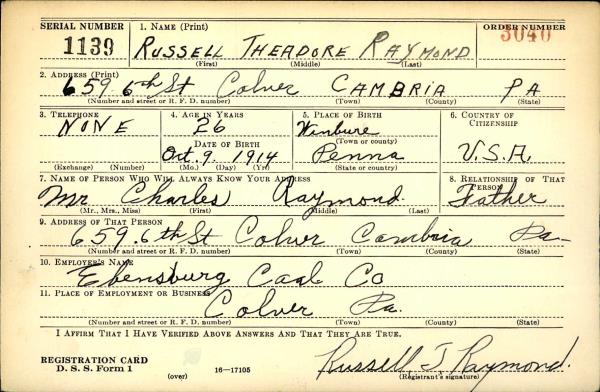 SERIAL NUMBER 1. NAME (Print) ORDER NUMBER
1139 RUSSELL THEADORE RAYMOND 3040
(First) (Middle) (Last)
2. ADDRESS (Print)
659 6th St Colver CAMBRIA PA
(Number and street or R. F. D. number) (Town) (County) (State)
3. TELEPHONE 4. AGE IN YEARS 5. PLACE OF BIRTH 6. COUNTRY OF CITIZENSHIP
NONE 26 Winbure
DATE OF BIRTH (Town or county)
Oct. 9. 1914 Penna U.S.A.
(Exchange) (Number) (Mo.) (Day) (Yr.) (State or country)
7. NAME OF PERSON WHO WILL ALWAYS KNOW YOUR ADDRESS 8. RELATIONSHIP OF THAT PERSON
Mr Charles Raymond Father
(Mr., Mrs., Miss) (First) (Middle) (Last)
9. ADDRESS OF THAT PERSON
659. 6th St Colver Cambria Pa-
(Number and street or R. F. D. number) (Town) (County) (State)
10. EMPLOYER'S NAME
Ebensburg Coal Co
11. PLACE OF EMPLOYMENT OR BUSINESS
Colver Pa.
(Number and street or R. F. D. number) (Town) (County) (State)
I AFFIRM THAT I HAVE VERIFIED ABOVE ANSWERS AND THAT THEY ARE TRUE.
REGISTRATION CARD
D. S. S. Form 1 16—17105 Russell T Raymond.
(over) (Registrant's signature)